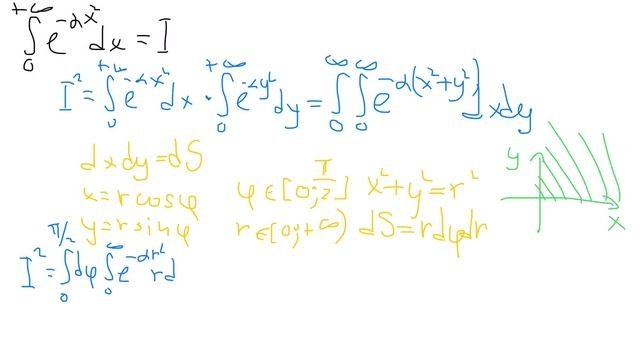 ∫₀^{+∞} e^{-αx²} dx = I
I² = ∫₀^{+∞} e^{-αx²} dx · ∫₀^{+∞} e^{-αy²} dy = ∫₀^∞ ∫₀^∞ e^{-α(x²+y²)} dxdy
dxdy = dS
x = r cosφ φ ∈ [0; π/2] x² + y² = r²
y = r sinφ r ∈ [0; +∞) dS = r dφ dr
y
x
I² = ∫₀^{π/2} dφ ∫₀^∞ e^{-αr²} r d